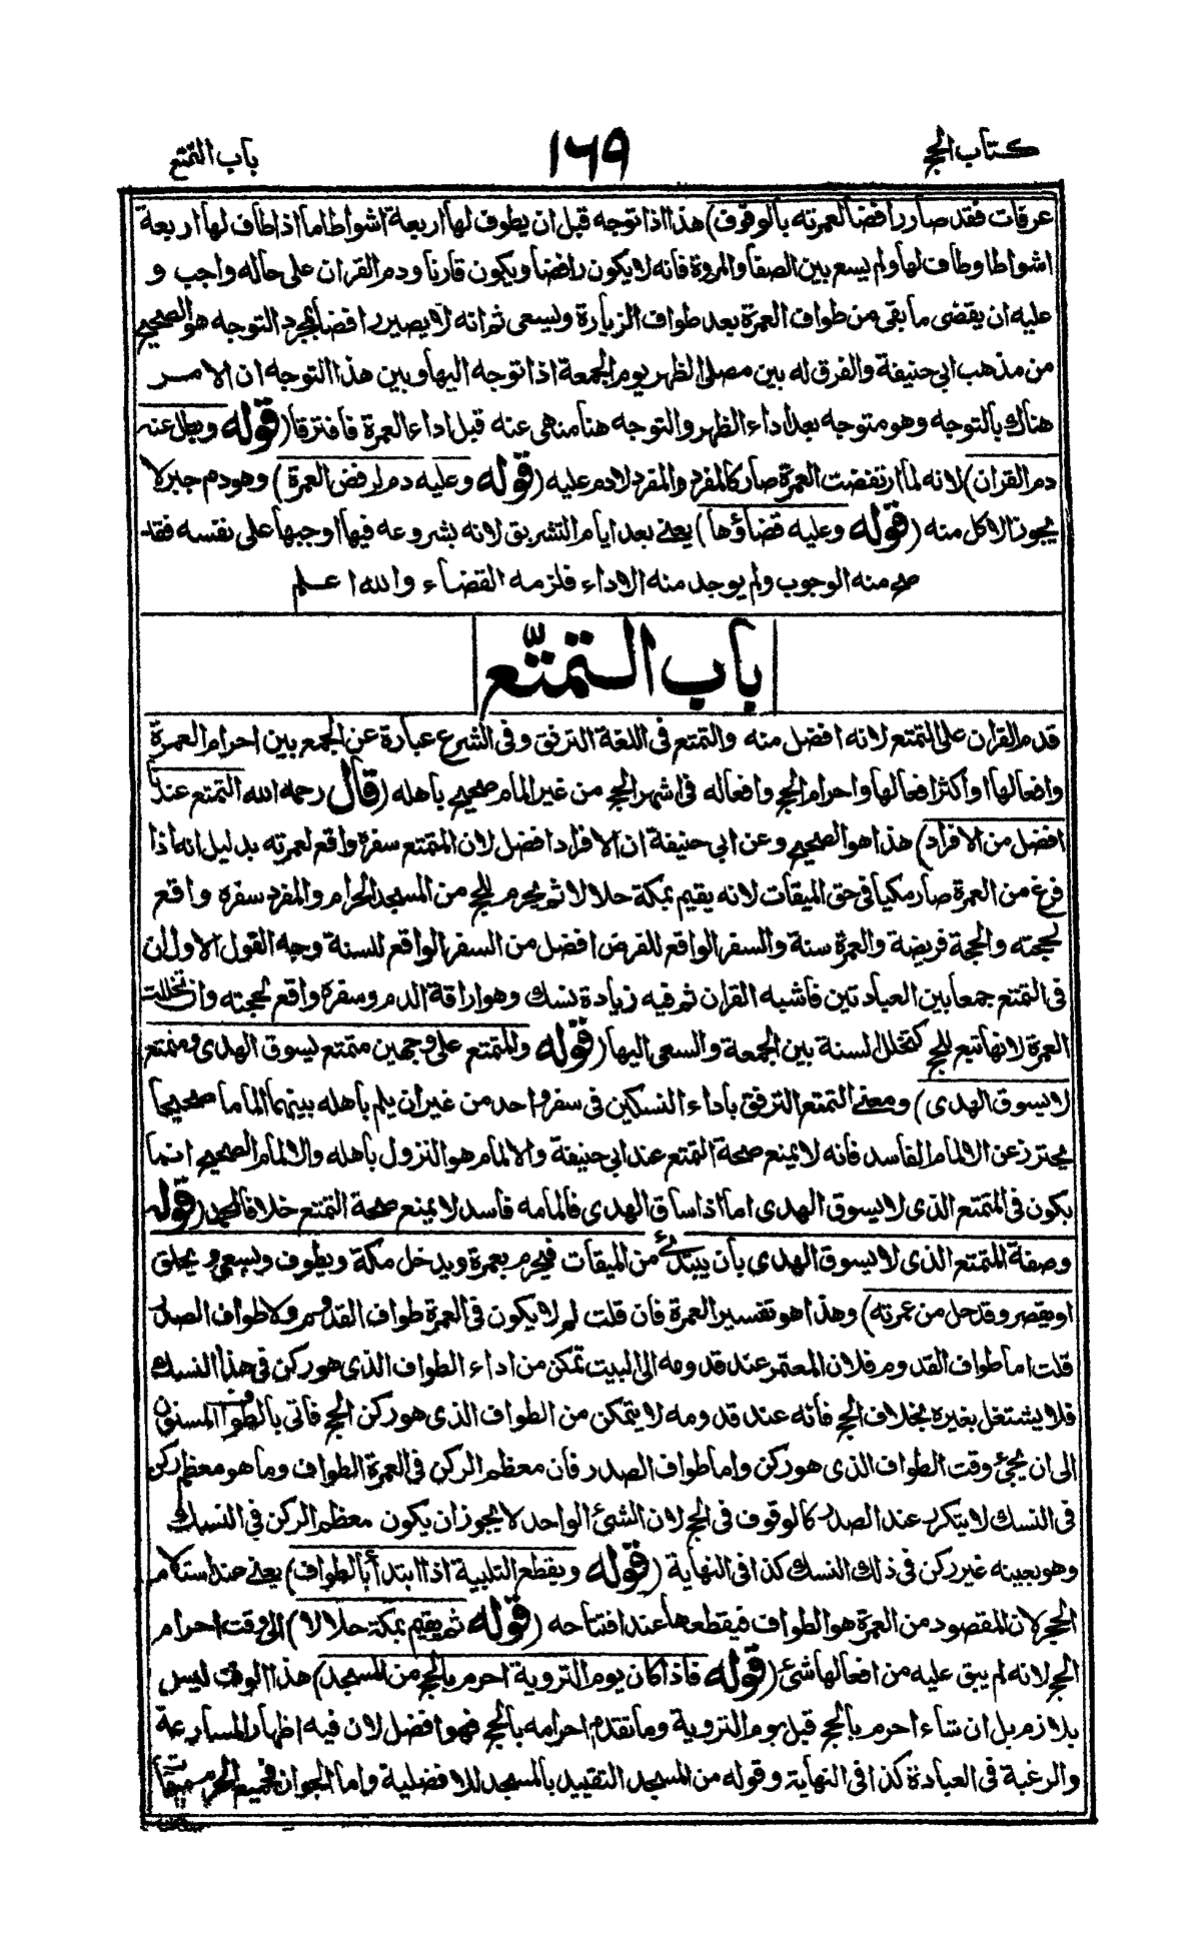 كتاب الحج
١٦٩
باب التمتع
عرفات فقد صار رافضا لعمرته بالوقوف) هذا اذا توجه قبل ان يطوف لها اربعة اشواط اما اذا طاف لها اربعة
اشواط او طاف لها ولم يسع بين الصفا والمروة فانه لا يكون رافضا ويكون قارنا ودم القران على حاله واجب و
عليه ان يقضى ما بقى من طواف العمرة بعد طواف الزيارة ويسعى ثم انه لا يصير رافضا بمجرد التوجه هو الصحيح
من مذهب ابى حنيفة والفرق له بين مصلى الظهر يوم الجمعة اذا توجه اليها وبين هذا التوجه ان الامـــر
هناك بالتوجه وهو متوجه بعد اداء الظهر والتوجه هنا منهى عنه قبل اداء العمرة فافترقا (قوله وبطل عنه
دم القران) لانه لما ارتفضت العمرة صار كالمفرد والمفرد لادم عليه (قوله وعليه دم لرفض العمرة) وهو دم جبر لا
يجوز الاكل منه (قوله وعليه قضاؤها) يعنى بعد ايام التشريق لانه بشروعه فيها اوجبها على نفسه فقد
صح منه الوجوب ولم يوجد منه الاداء فلزمه القضاء والله اعلم
باب التمتّع
قدم القران على التمتع لانه افضل منه والتمتع فى اللغة الترفق وفى الشرع عبارة عن الجمع بين احرام العمرة
وافعالها او اكثر افعالها واحرام الحج وافعاله فى اشهر الحج من غير المام صحيح باهله (قال رحمه الله التمتع عندنا
افضل من الافراد) هذا هو الصحيح وعن ابى حنيفة ان الافراد افضل لان المتمتع سفره واقع لعمرته بدليل انه اذا
فرغ من العمرة صار مكيا فى حق الميقات لانه يقيم بمكة حلالا ثم يحرم للحج من المسجد الحرام والمفرد سفره واقع
لحجته والحجة فريضة والعمرة سنة والسفر الواقع للفرض افضل من السفر الواقع للسنة وجه القول الاول ان
فى التمتع جمعا بين العبادتين فاشبه القران ثم فيه زيادة نسك وهو اراقة الدم وسفره واقع لحجته وان تخللت
العمرة لانها تبع للحج كتخلل السنة بين الجمعة والسعى اليها (قوله والمتمتع على وجهين متمتع يسوق الهدى ومتمتع
لا يسوق الهدى) ومعنى التمتع الترفق باداء النسكين فى سفر واحد من غير ان يلم باهله بينهما الماما صحيحا
يحترز عن الالمام الفاسد فانه لا يمنع صحة التمتع عند ابى حنيفة والالمام هو النزول باهله والالمام الصحيح انما
يكون فى المتمتع الذى لا يسوق الهدى اما اذا ساق الهدى فالمامه فاسد لا يمنع صحة التمتع خلافا لمحمد (قوله
وصفة المتمتع الذى لا يسوق الهدى بان يبتدئ من الميقات فيحرم بعمرة ويدخل مكة ويطوف ويسعى ويحلق
او يقصر وقد حل من عمرته) وهذا هو تفسير العمرة فان قلت لم لا يكون فى العمرة طواف القدوم ولا طواف الصدر
قلت اما طواف القدوم فلان المعتمر عند قدومه الى البيت تمكن من اداء الطواف الذى هو ركن فى هذا النسك
فلا يشتغل بغيره بخلاف الحج فانه عند قدومه لا يتمكن من الطواف الذى هو ركن الحج فاتى بالطواف المسنون
الى ان يجئ وقت الطواف الذى هو ركن واما طواف الصدر فان معظم الركن فى العمرة الطواف وما هو معظم ركن
فى النسك لا يتكرر عند الصدر كالوقوف فى الحج لان الشئ الواحد لا يجوز ان يكون معظم الركن فى النسك
وهو بعينه غير ركن فى ذلك النسك كذا فى النهاية (قوله ويقطع التلبية اذا ابتدأ بالطواف) يعنى عند استلام
الحجر لان المقصود من العمرة هو الطواف فيقطعها عند افتتاحه (قوله ثم يقيم بمكة حلالا) الى وقت احرام
الحج لانه لم يبق عليه من افعالها شئ (قوله فاذا كان يوم التروية احرم بالحج من المسجد) هذا الوقت ليس
بلازم بل ان شاء احرم بالحج قبل يوم التروية وما تقدم احرامه بالحج فهو افضل لان فيه اظهار المسارعة
والرغبة فى العبادة كذا فى النهاية وقوله من المسجد التقييد بالمسجد للافضلية واما الجواز فجميع الحرم ميقات